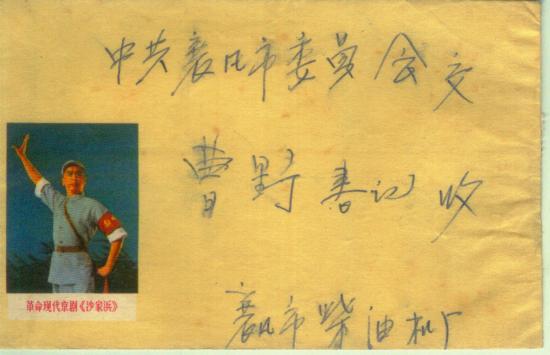 中共襄凡市委员会交
曹野書记收
革命现代京剧《沙家浜》
襄凡市柴油机厂